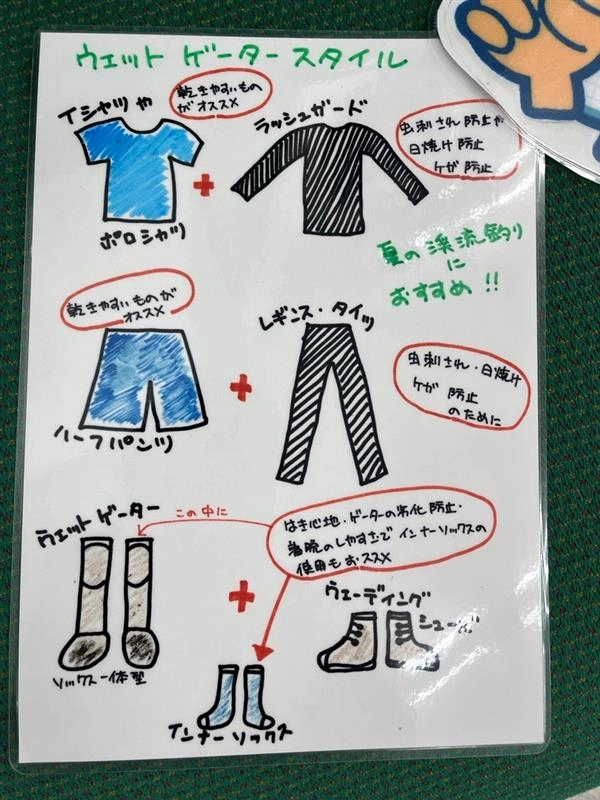 ウェット ゲーター スタイル
Tシャツ や
乾きやすいもの
がオススメ
ラッシュガード
虫刺され防止や
日焼け防止
ケガ防止
ポロシャツ
夏の渓流釣り
に
おすすめ!!
乾きやすいものが
オススメ
レギンス・タイツ
虫刺され・日焼け
ケガ 防止
のために
ハーフパンツ
ウェットゲーター
この中に
はき心地・ゲーターの劣化防止・
着脱のしやすさで インナーソックスの
使用もおススメ
ウェーディング
シューズ
ソックス一体型
インナーソックス